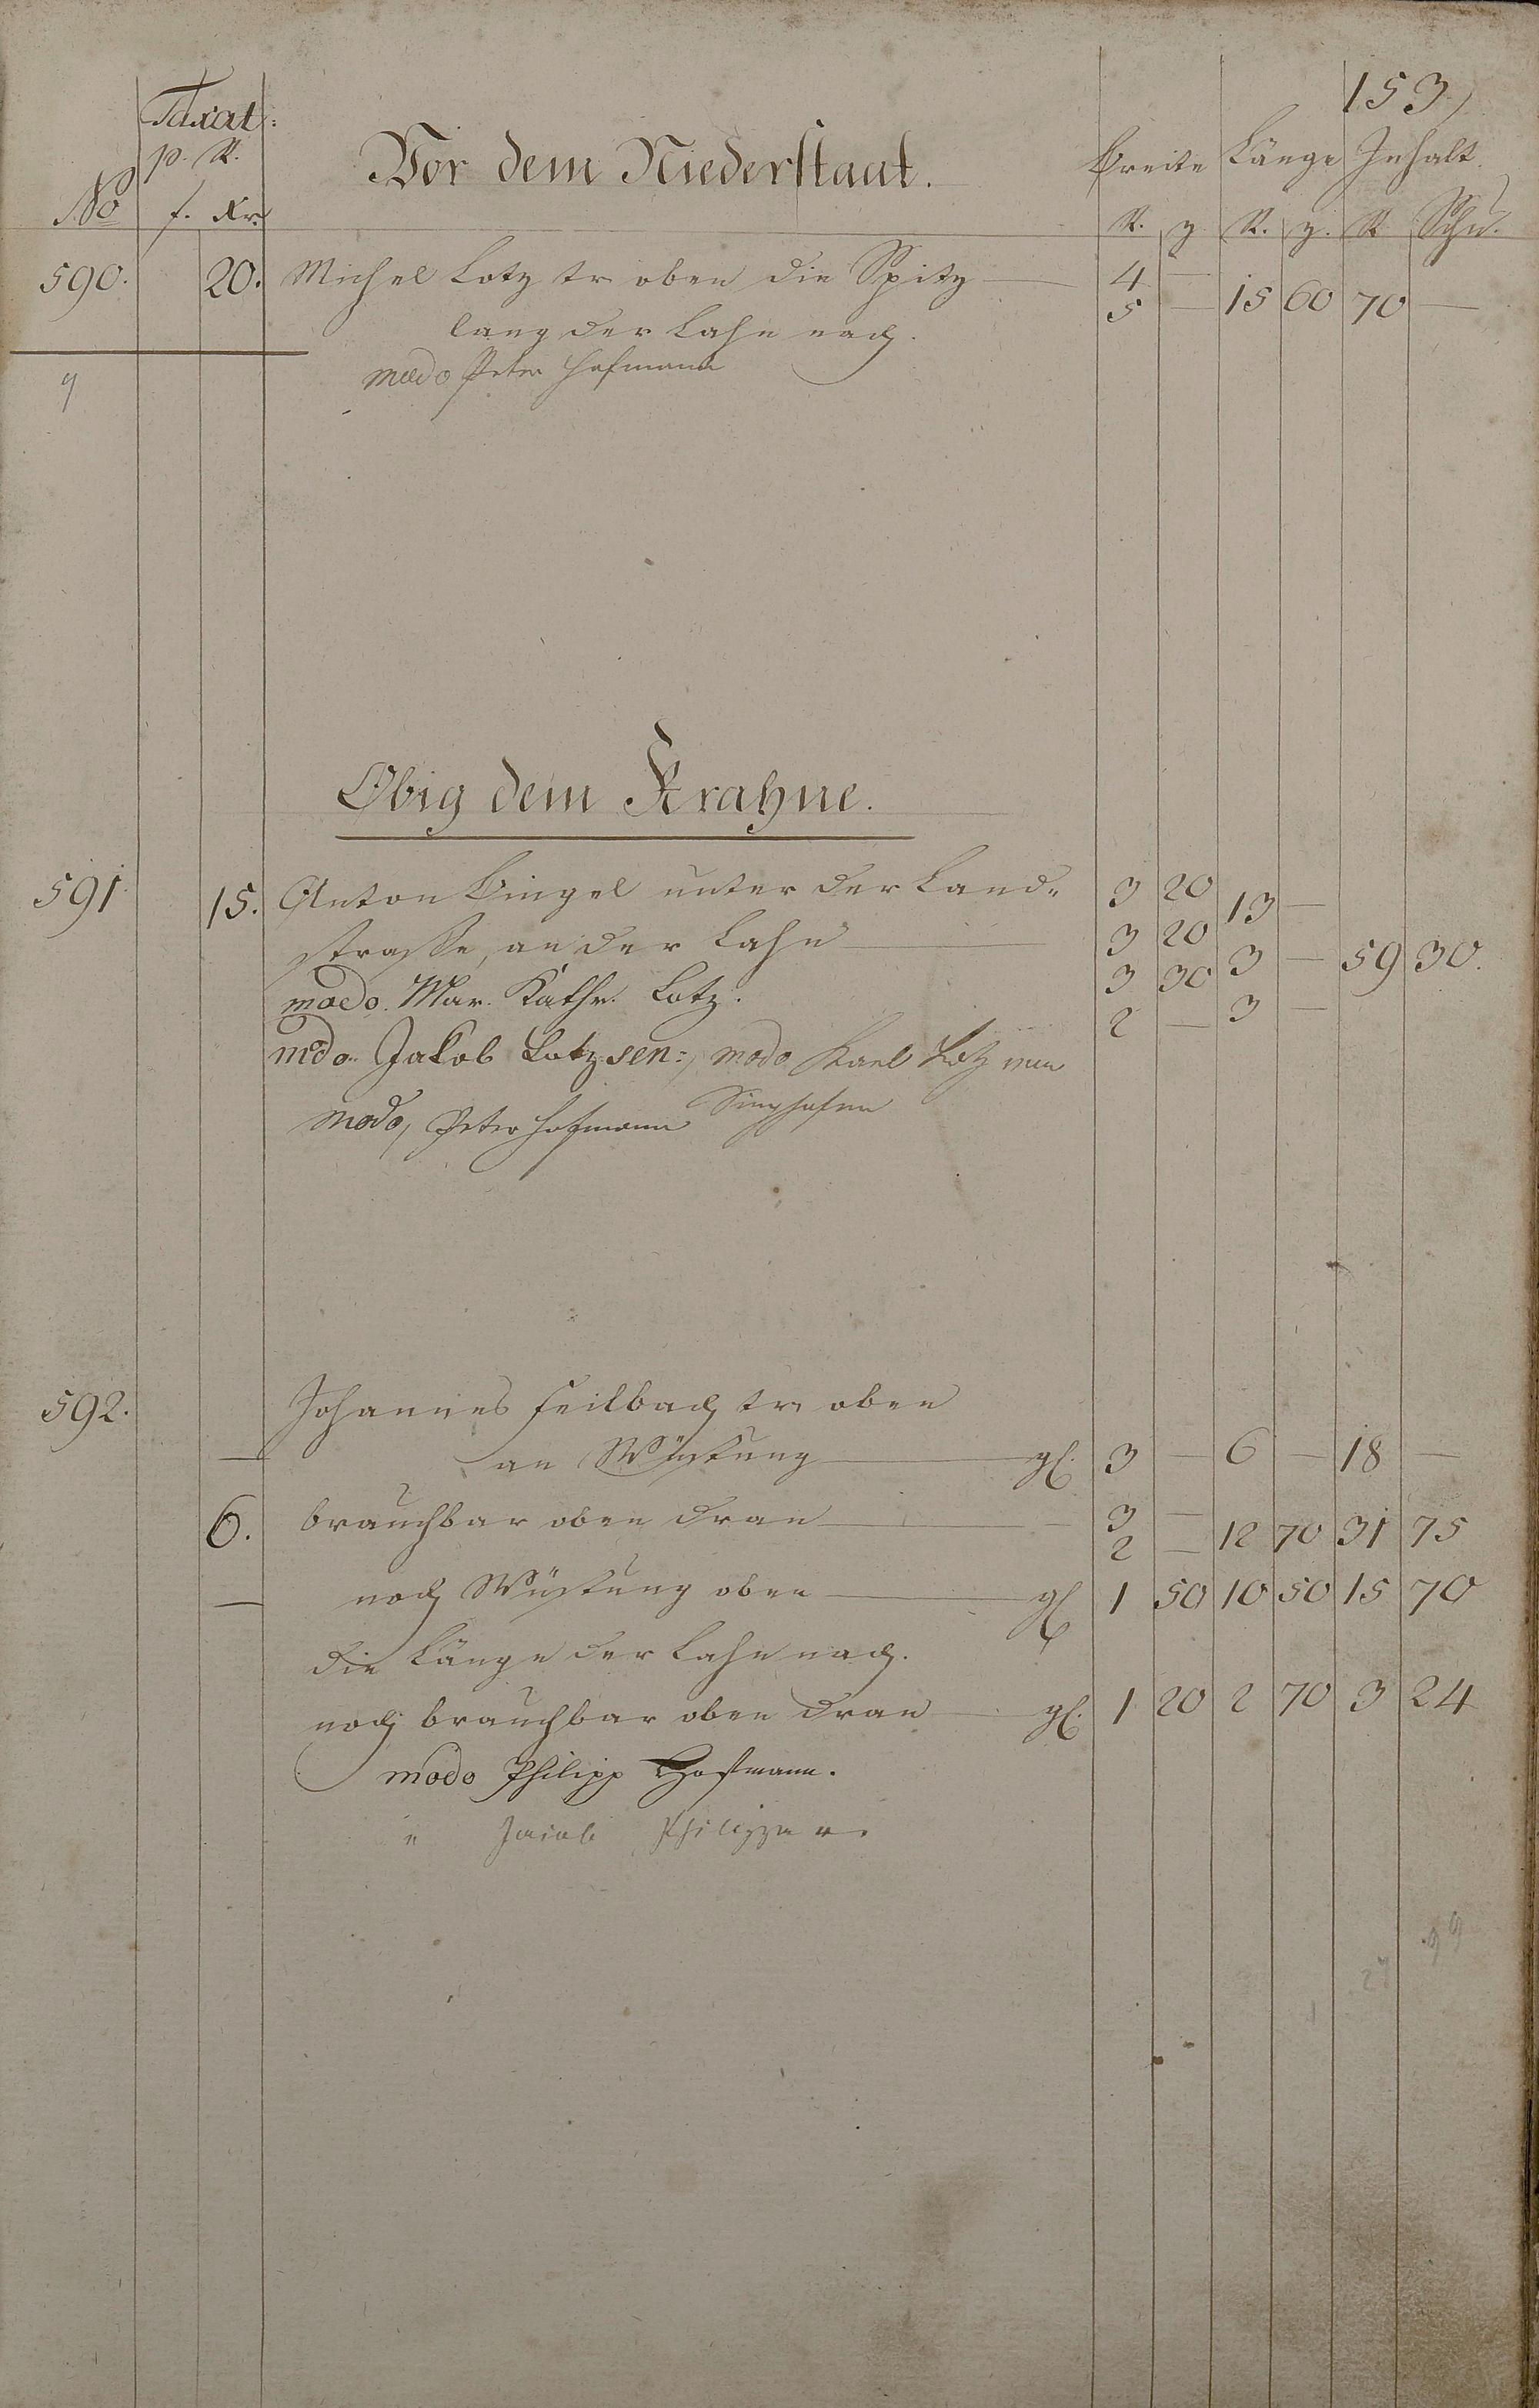 153.)
Taxat:
p. R.
Vor dem Niederstaat.
Breite Länge Inhalt
No f. Xr.
R. z. R. z. R Schu.
590. 20. Michel Lotz tr oben die Spitz — 4 — 
5 — 15 60 70 —
lang der Lahn nach.
modo Peter Hofmann
Obig dem Krahne.
591 15. Anton Bingel unter der Land= 3 20 13 —
strasse, an der Lahn — 3 20
3 30 3 — 59 30.
modo. Mar. Kathr. Lotz. 2 — 3 —
mdo. Jakob Lotz sen=, modo Karl Lotz von
Singhofen
modo, Peter Hofmann
592. Johannes Feilbach tr. oben
— an Wüstung — gl. 3 — 6 — 18 —
6. brauchbar oben dran — 3 —
2 — 12 70 31 75
— noch Wüstung oben — gl 1 50 10 50 15 70
die Länge der Lahn nach.
noch brauchbar oben dran — gl. 1 20 2 70 3 24
modo Philipp Hofmann.
" Jacob